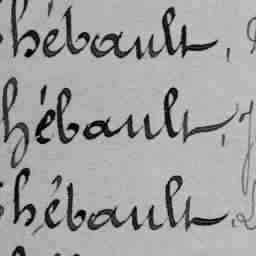 Thébault,
Thébault,
Thébault